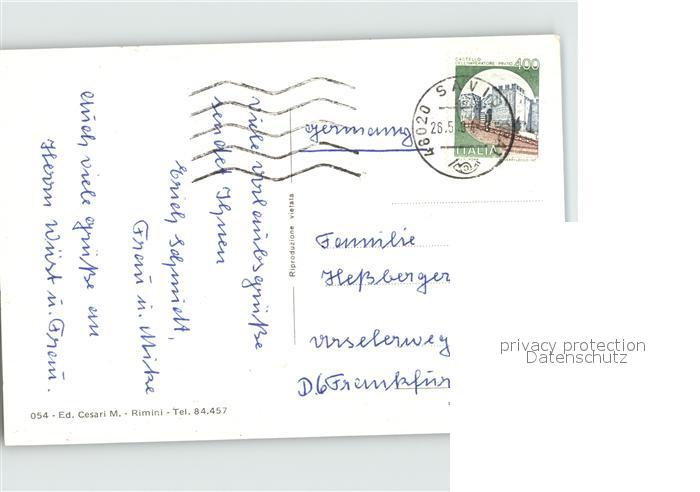 Viele Urlaubsgrüße
sendet Ihnen
Erich Schmidt,
Frau u. Mike
Auch viele Grüße an
Herrn Wüst u. Frau.
Germany
Familie
Heßberger
Urselerweg
D6 Frankfur
Riproduzione vietata
054 - Ed. Cesari M. - Rimini - Tel. 84.457
CASTELLO
DELL'IMPERATORE - PRATO
400
ITALIA
48020 SAVIO
26.5
privacy protection
Datenschutz